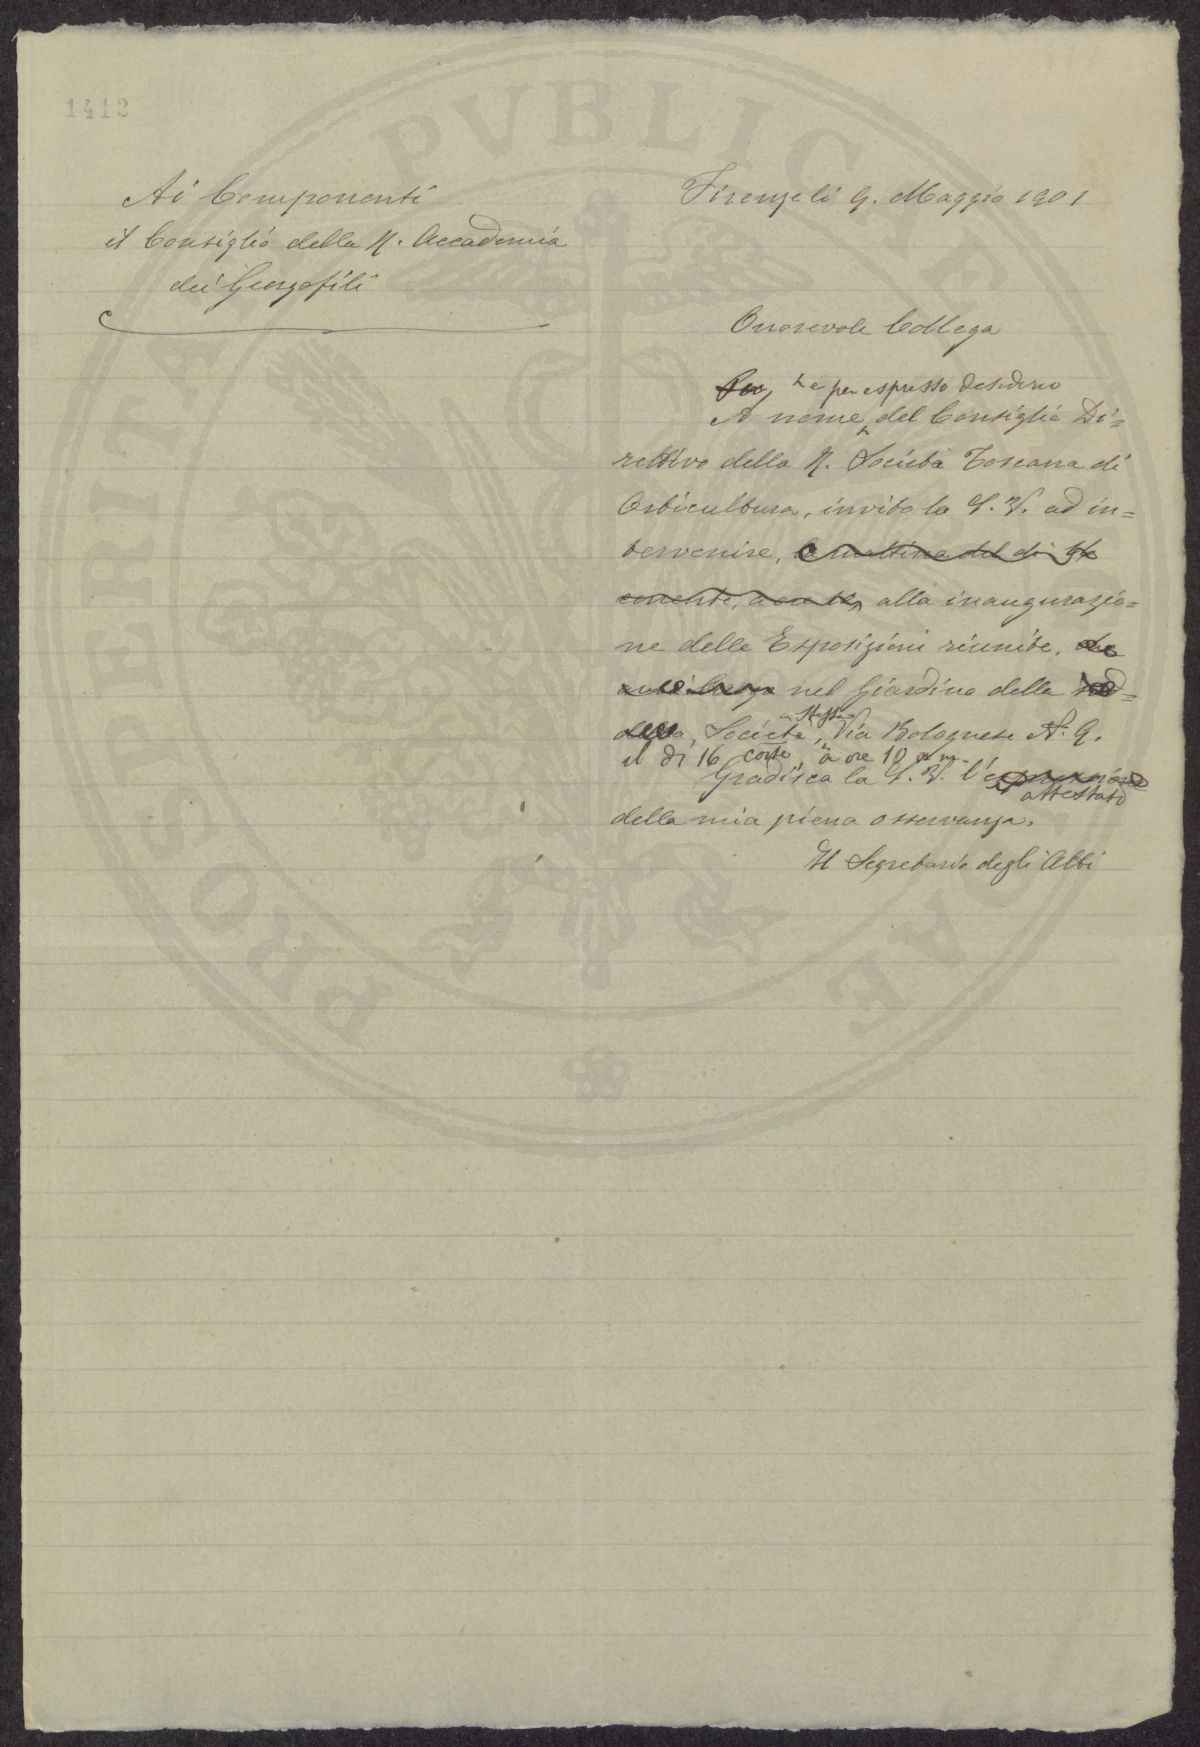 1412
PROSPERITATI PVBLICAE
Ai Componenti
il Consiglio della R. Accademia
dei Georgofili
Firenze li 9. Maggio 1901
Onorevole Collega
e per espresso desiderio
A nome del Consiglio Di=
rettivo della R. Società Toscana di
Orticultura, invito la S. V. ad in=
tervenire, la mattina del dì 16
corrente, a ore 10, alla inaugurazio=
ne delle Esposizioni riunite, che
avrà luogo nel Giardino della
della Società stessa, Via Bolognese N. 9.
il dì 16 corrte, a ore 10 a m.
Gradisca la S. V. l'espressione
attestato
della mia piena osservanza.
Il Segretario degli Atti